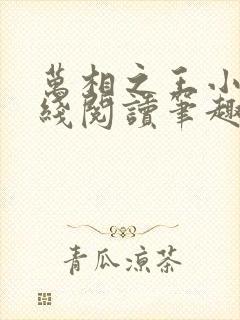 萬相之王小
綫閱讀筆趣
青瓜涼茶